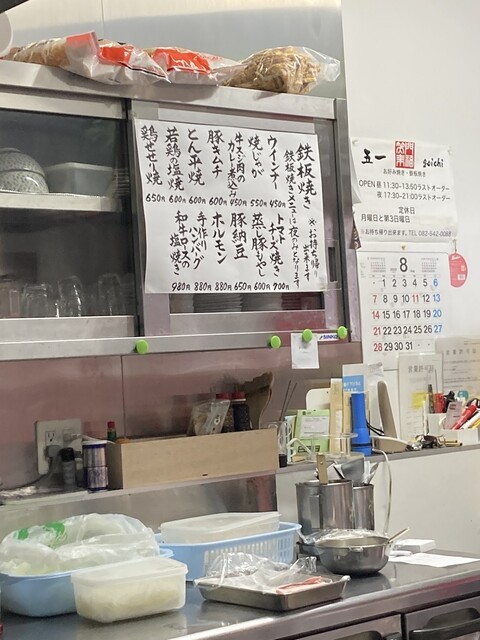 鉄板焼き
※お持ち帰り
出来ます
鉄板焼きメニューは夜のみとなります
ウインナー 450円
焼じゃが 550円
牛スジ肉の
カレー煮込み 450円
豚キムチ 600円
とん平焼 600円
若鶏の塩焼 600円
鶏せせり焼 650円
トマト
チーズ焼き 700円
蒸し豚もやし 600円
豚納豆 650円
ホルモン 880円
手作り
ハンバーグ 880円
和牛ロースの
塩焼き 980円
五一 goichi
お好み焼き・鉄板焼き
OPEN 昼 11:30-13:50ラストオーダー
夜 17:30-21:00ラストオーダー
定休日
月曜日と第3日曜日
※お持ち帰り出来ます。TEL 082-542-0088
8
1 2 3 4 5 6
7 8 9 10 11 12 13
14 15 16 17 18 19 20
21 22 23 24 25 26 27
28 29 30 31